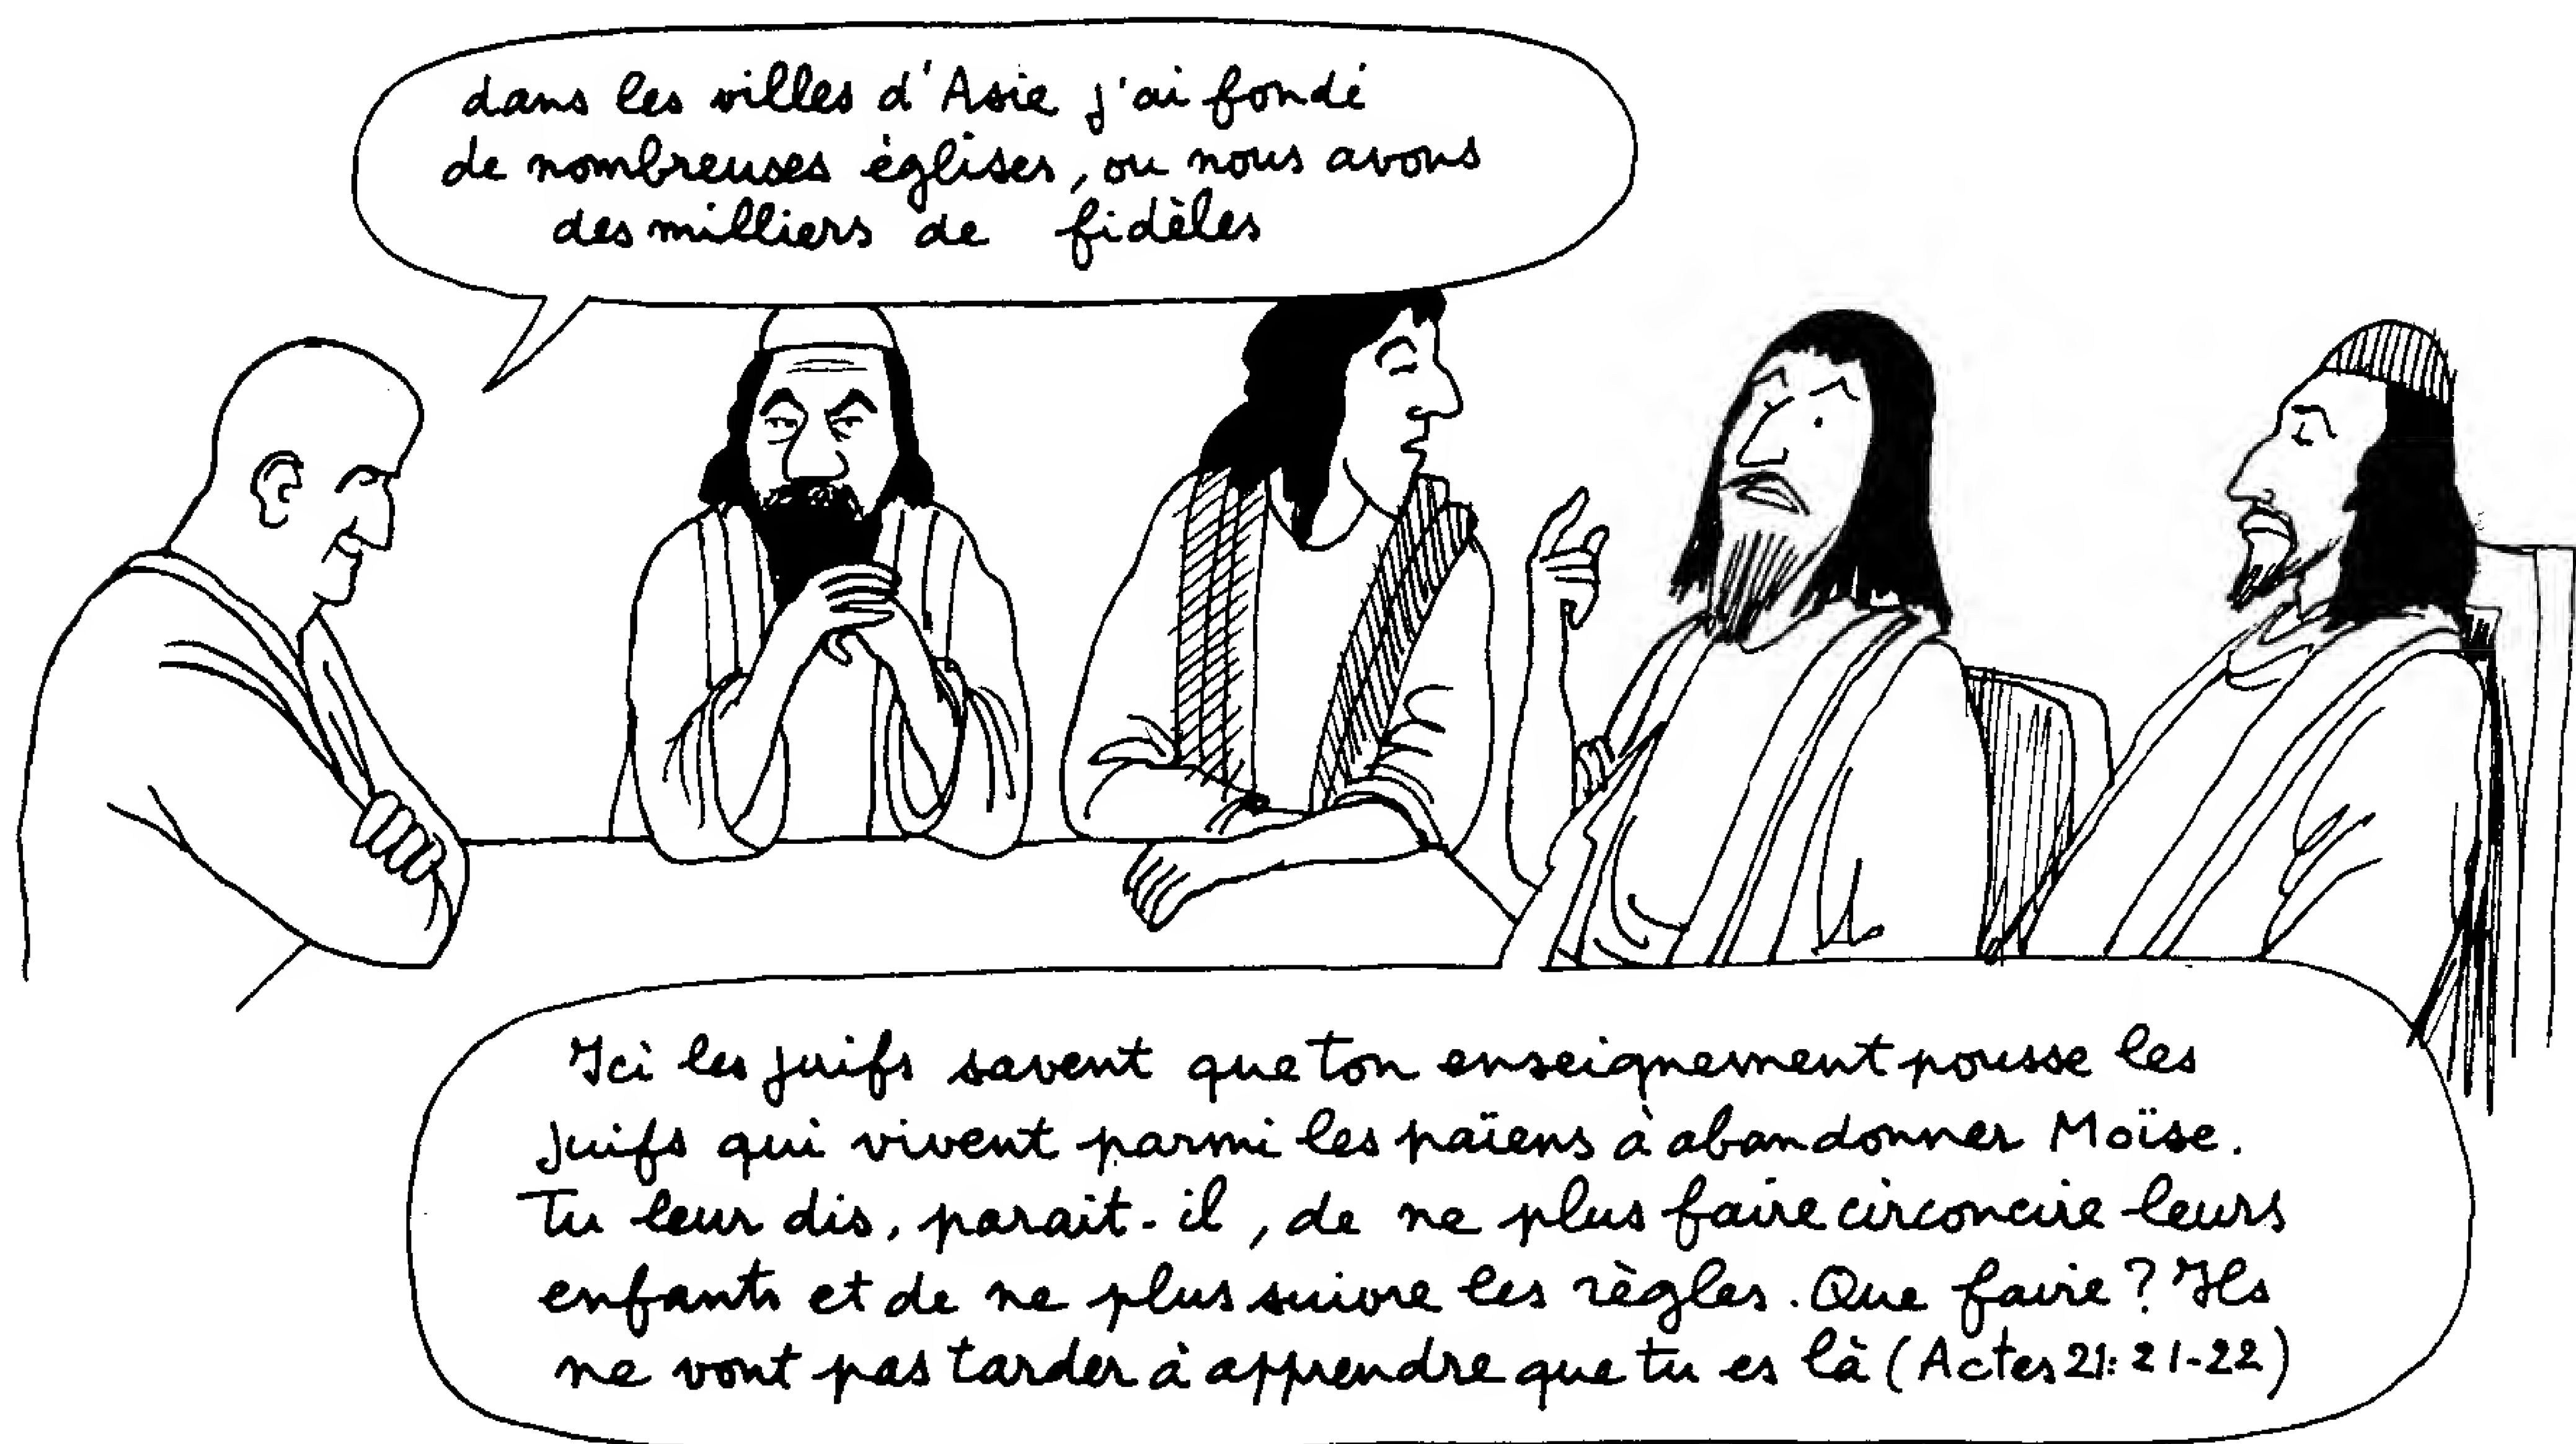 dans les villes d'Asie j'ai fondé
de nombreuses églises, ou nous avons
des milliers de fidèles
Ici les juifs savent que ton enseignement pousse les
juifs qui vivent parmi les païens à abandonner Moïse.
Tu leur dis, parait-il, de ne plus faire circoncire leurs
enfants et de ne plus suivre les règles. Que faire? Ils
ne vont pas tarder à apprendre que tu es là (Actes 21:21-22)